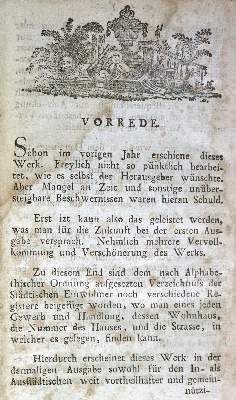 VORREDE.
Schon im vorigen Jahr erschiene dieses
Werk. Freylich nicht so pünktlich bearbei-
tet, wie es selbst der Herausgeber wünschte.
Aber Mangel an Zeit und sonstige unüber-
steigbare Beschwernissen waren hieran Schuld.
Erst izt kann also das geleistet werden,
was man für die Zukunft bei der ersten Aus-
gabe versprach. Nehmlich mehrere Vervoll-
kommung und Verschönerung des Werks.
Zu diesem End sind dem nach Alphabe-
thischer Ordnung aufgesetzten Verzeichnifs der
Städtischen Einwohner noch verschiedene Re-
gistere beigefügt worden, wo man eines jeden
Gewerb und Handlung, dessen Wohnhaus,
die Nummer des Hauses, und die Strasse, in
welcher es gelegen, finden kann.
Hierdurch erscheinet dieses Werk in der
dermaligen Ausgabe sowohl für den In- als
Ausstädtischen weit vortheilhafter und gemein-
nützi-